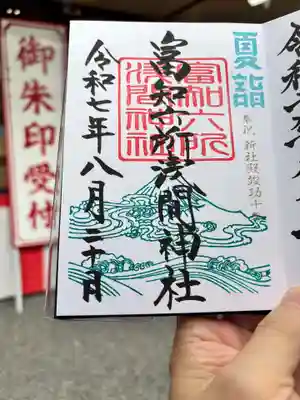 御朱印受付
夏詣
奉祝 新社殿竣功十
富知六所浅間神社
富知六所
浅間神社
令和七年八月二十日